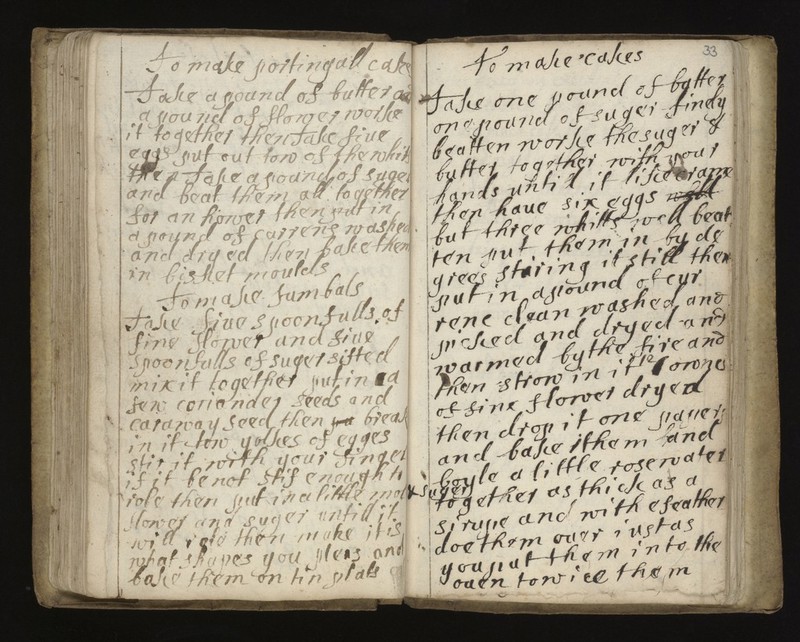 To make portingall cakes
Take a pound of butter and
a pound of flower worke
it together then Take five
eggs put out tow of the whits
then Take a pound of suger
and beat them all together
for an hower then put in
a pound of currens washed
and dryed then bake them
in bisket moulds
To make Jumbals
Take five spoonfulls of
fine flower and five
spoonfulls of suger sifted
mix it together put in a
few coriander seeds and
caraway seed then break
in it tow yolkes of egges
stir it with your finger
if it be not stif enough to
role then put in a little mor
flower and suger untill it
will role then make it is
what shapes you pleas and
bake them on tin plats
33
To make cakes
Take one pound of butter
one pound of suger finely
beatten worke the suger &
butter together with your
hands until it like crame
then have six eggs well
but three whitts well beat
ten put them in by de
grees stiring it still then
put in a pound of cur
rene clean washed and
picked and dryed and
warmed by the fire and
then strow in it 12 ownces
of fine flower dryed
then drop it one paper
and bake them and
boyle a little rosewater
& suger
together as thick as a
sirupe and with efeather
doe them over iust as
you put them into the
oven to wice them